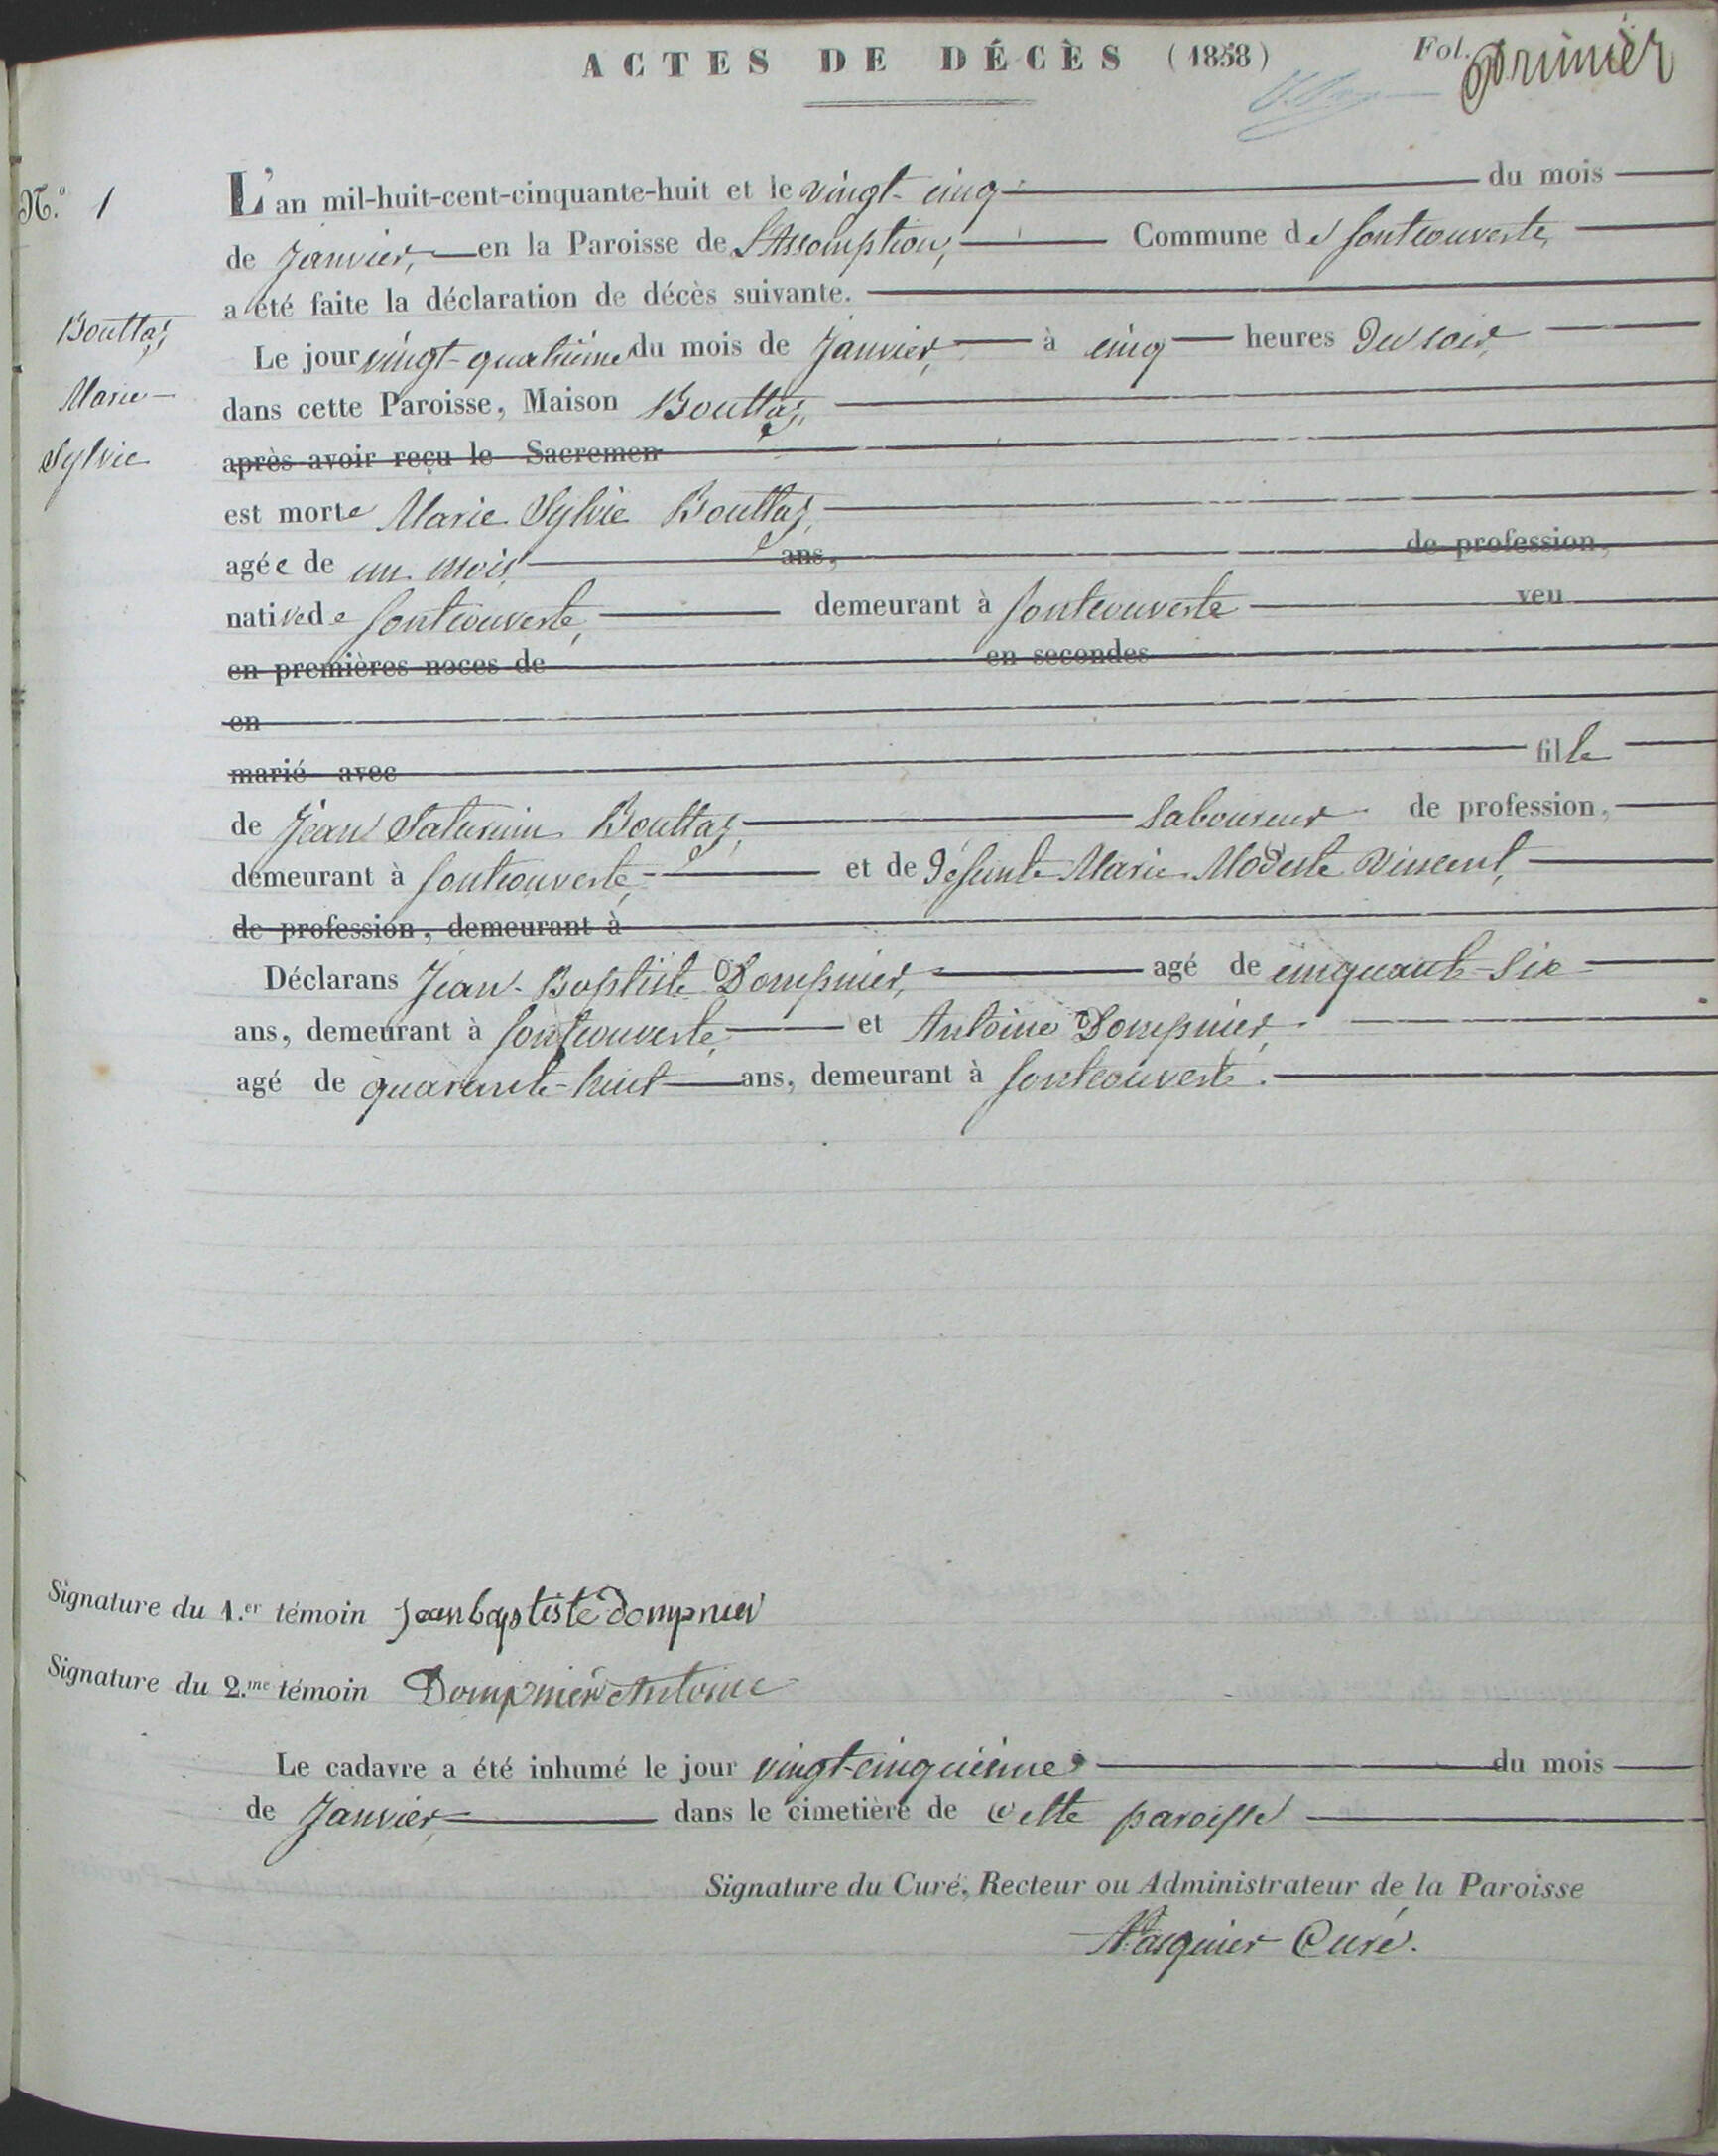 ACTES DE DÉCÈS (1858) Fol. Premier
N.º 1
L'an mil-huit-cent-cinquante-huit et le vingt-cinq du mois
de Janvier, en la Paroisse de L'Assomption, Commune de Fontcouverte,
a été faite la déclaration de décès suivante.
Bouttaz
Marie
Sylvie
Le jour vingt-quatrième du mois de Janvier, à cinq heures du soir,
dans cette Paroisse, Maison Bouttaz,
après avoir reçu le Sacremen
est morte Marie Sylvie Bouttaz,
agée de un mois ans, de profession,
native de Fontcouverte, demeurant à Fontcouverte veu
en premières noces de en secondes
en
marié avec fille
de Jean Saturnin Bouttaz, laboureur de profession,
demeurant à Fontcouverte, et de défunte Marie Modeste Vincent,
de profession, demeurant à
Déclarans Jean-Baptiste Dompnier, agé de cinquante-six
ans, demeurant à Fontcouverte, et Antoine Dompnier,
agé de quarante-huit ans, demeurant à Fontcouverte.
Signature du 1.er témoin Jean baptiste dompnier
Signature du 2.me témoin Dompnier Antoine
Le cadavre a été inhumé le jour vingt-cinquième du mois
de Janvier, dans le cimetière de cette paroisse
Signature du Curé, Recteur ou Administrateur de la Paroisse
Curé.